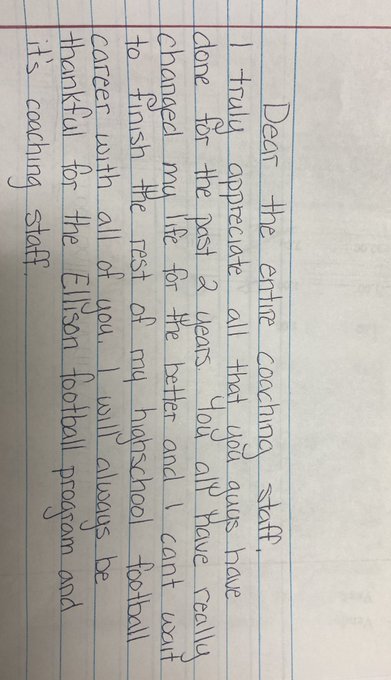 Dear the entire coaching staff,
I truly appreciate all that you guys have
done for the past 2 years. You all have really
changed my life for the better and I cant wait
to finish the rest of my highschool football
career with all of you. I will always be
thankful for the Ellison football program and
it's coaching staff.